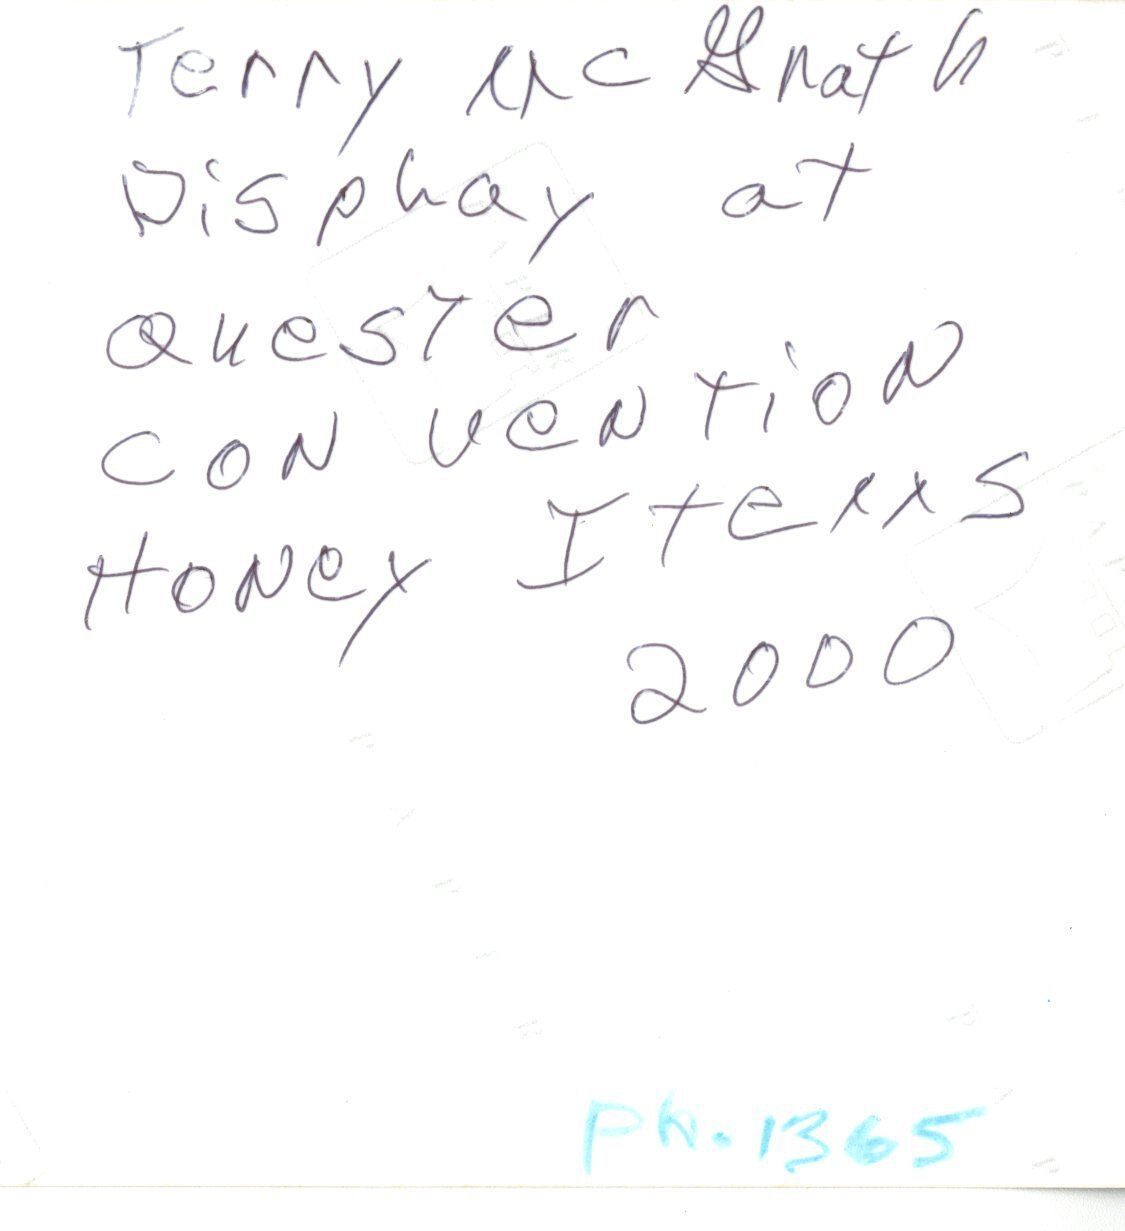 Terry McGrath
Display at
Quester
CONVENTION
HONey Items
2000
Ph. 1365